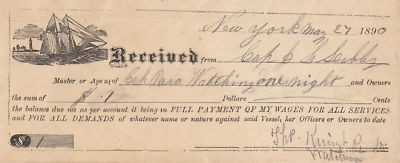 New York May 27 1890
Received from Cap J
Master or Agent of Sch Watching one night and Owners
the sum of $ 1 Dollars Cents
the balance due me as per account it being in FULL PAYMENT OF MY WAGES FOR ALL SERVICES
and FOR ALL DEMANDS of whatever name or nature against said Vessel, her Officers or Owners to date
$ 1
Watchman